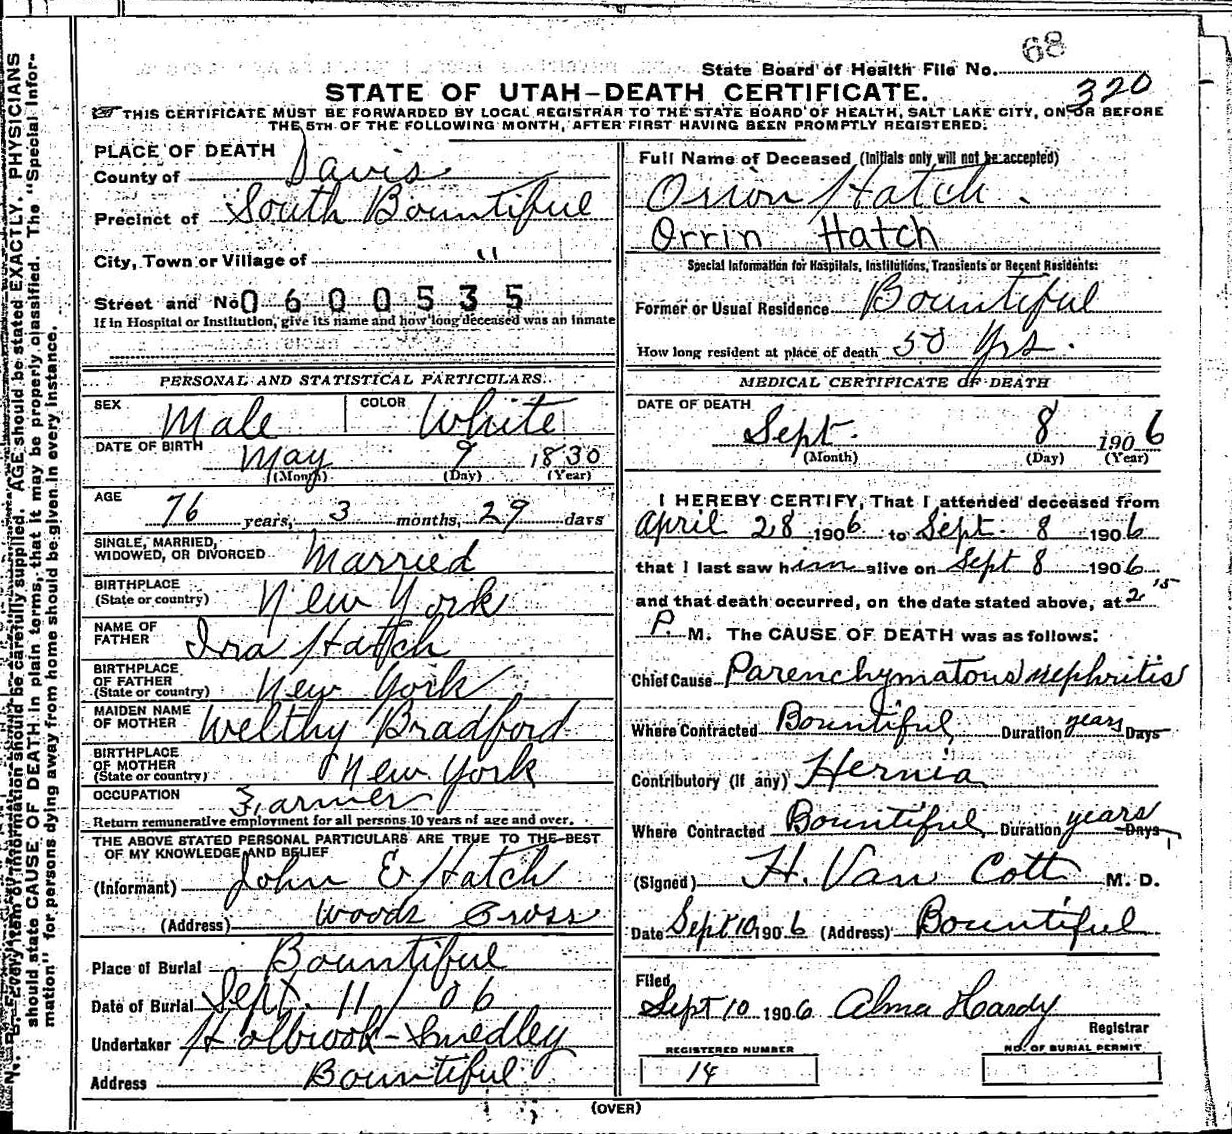 68
State Board of Health File No.
320
STATE OF UTAH—DEATH CERTIFICATE.
THIS CERTIFICATE MUST BE FORWARDED BY LOCAL REGISTRAR TO THE STATE BOARD OF HEALTH, SALT LAKE CITY, ON OR BEFORE
THE 5TH OF THE FOLLOWING MONTH, AFTER FIRST HAVING BEEN PROMPTLY REGISTERED.
PLACE OF DEATH
County of Davis
Precinct of South Bountiful
City, Town or Village of "
Street and No 0600535
If in Hospital or Institution, give its name and how long deceased was an inmate
PERSONAL AND STATISTICAL PARTICULARS.
SEX Male COLOR White
DATE OF BIRTH May 9 1830
(Month) (Day) (Year)
AGE 76 years, 3 months, 29 days
SINGLE, MARRIED,
WIDOWED, OR DIVORCED Married
BIRTHPLACE
(State or country) New York
NAME OF
FATHER Ira Hatch
BIRTHPLACE
OF FATHER
(State or country) New York
MAIDEN NAME
OF MOTHER Welthy Bradford
BIRTHPLACE
OF MOTHER
(State or country) New York
OCCUPATION Farmer
Return remunerative employment for all persons 10 years of age and over.
THE ABOVE STATED PERSONAL PARTICULARS ARE TRUE TO THE BEST
OF MY KNOWLEDGE AND BELIEF
(Informant) John E Hatch
(Address) Woods Cross
Place of Burial Bountiful
Date of Burial Sept. 11 / 06
Undertaker Holbrook-Smedley
Address Bountiful
Full Name of Deceased (Initials only will not be accepted)
Orrion Hatch.
Orrin Hatch
Special Information for Hospitals, Institutions, Transients or Recent Residents:
Former or Usual Residence Bountiful
How long resident at place of death 50 Yrs.
MEDICAL CERTIFICATE OF DEATH
DATE OF DEATH
Sept. 8 1906
(Month) (Day) (Year)
I HEREBY CERTIFY, That I attended deceased from
April 28 1906 to Sept. 8 1906
that I last saw him alive on Sept 8 1906
and that death occurred, on the date stated above, at 2 15
P. M. The CAUSE OF DEATH was as follows:
Chief Cause Parenchymatous nephritis
Where Contracted Bountiful Duration years Days
Contributory (if any) Hernia
Where Contracted Bountiful Duration years Days
(Signed) H. Van Cott M. D.
Date Sept 10 1906 (Address) Bountiful
Filed
Sept 10 1906 Alma Hardy
Registrar
REGISTERED NUMBER
14
NO. OF BURIAL PERMIT
(OVER)
N. B.—Every item of information should be carefully supplied. AGE should be stated EXACTLY. PHYSICIANS
should state CAUSE OF DEATH in plain terms, that it may be properly classified. The "Special Infor-
mation" for persons dying away from home should be given in every instance.